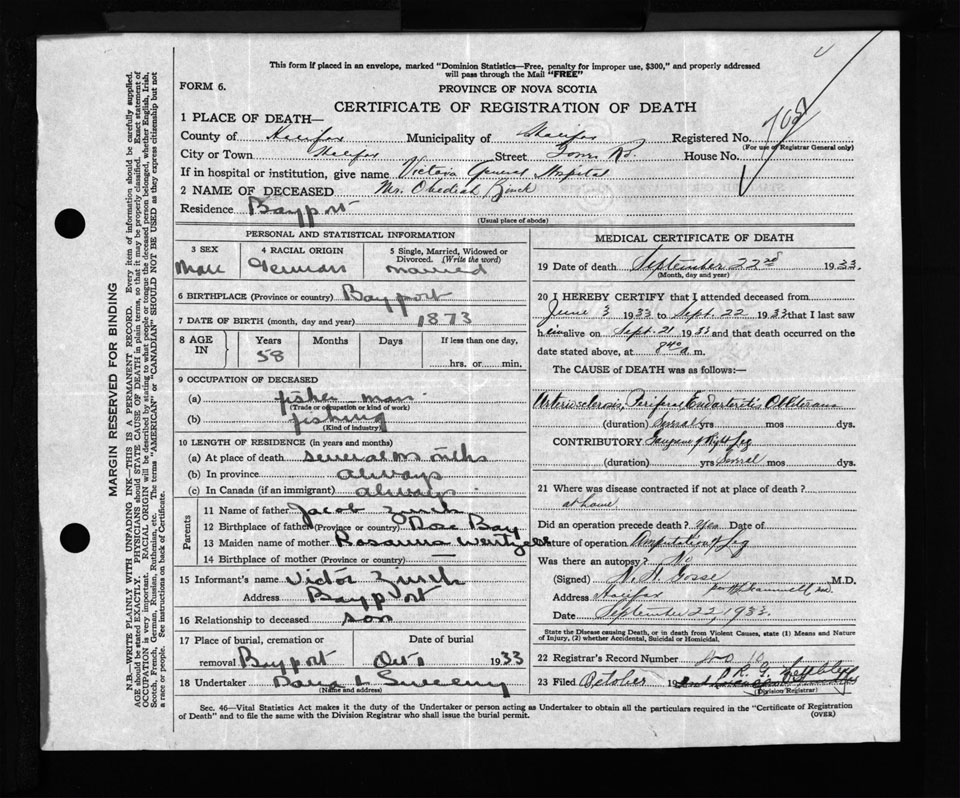 This form if placed in an envelope, marked "Dominion Statistics—Free, penalty for improper use, $300," and properly addressed
will pass through the Mail "FREE"
FORM 6.
PROVINCE OF NOVA SCOTIA
CERTIFICATE OF REGISTRATION OF DEATH
1 PLACE OF DEATH—
County of Halifax Municipality of Halifax Registered No.
(For use of Registrar General only)
City or Town Halifax Street House No.
If in hospital or institution, give name Victoria General Hospital
2 NAME OF DECEASED Mr. Obediah Zinck
Residence Bayport
(Usual place of abode)
PERSONAL AND STATISTICAL INFORMATION
3 SEX 4 RACIAL ORIGIN 5 Single, Married, Widowed or
Divorced. (Write the word)
Male German married
6 BIRTHPLACE (Province or country) Bayport
7 DATE OF BIRTH (month, day and year) 1873
8 AGE IN Years Months Days If less than one day,
58 hrs. or min.
9 OCCUPATION OF DECEASED
(a) fisher man
(Trade or occupation or kind of work)
(b) fishing
(Kind of industry)
10 LENGTH OF RESIDENCE (in years and months)
(a) At place of death several months
(b) In province always
(c) In Canada (if an immigrant) always
Parents
11 Name of father Jacob Zinck
12 Birthplace of father (Province or country) Rose Bay
13 Maiden name of mother Rosanna Wentzell
14 Birthplace of mother (Province or country) —
15 Informant's name Victor Zinck
Address Bayport
16 Relationship to deceased son
17 Place of burial, cremation or Date of burial
removal Bayport Oct 1933
18 Undertaker Sweeny
(Name and address)
MEDICAL CERTIFICATE OF DEATH
19 Date of death September 22nd 1933.
(Month, day and year)
20 I HEREBY CERTIFY that I attended deceased from
June 3 1933 to Sept. 22 1933 that I last saw
him alive on Sept. 21 1933 and that death occurred on the
date stated above, at 840 a. m.
The CAUSE of DEATH was as follows:—
Arteriosclerosis, Periferal Endarteritis Obliterans
(duration) Several yrs mos dys.
CONTRIBUTORY Gangrene of Right Leg
(duration) yrs Several mos dys.
21 Where was disease contracted if not at place of death?
at home
Did an operation precede death? Yes Date of
Nature of operation Amputation of leg
Was there an autopsy? No
(Signed) N. H. Gosse M.D.
Address Halifax
Date September 22, 1933.
State the Disease causing Death, or in death from Violent Causes, state (1) Means and Nature
of Injury, (2) whether Accidental, Suicidal or Homicidal.
22 Registrar's Record Number
23 Filed October 19
(Division Registrar)
Sec. 46—Vital Statistics Act makes it the duty of the Undertaker or person acting as Undertaker to obtain all the particulars required in the "Certificate of Registration
of Death" and to file the same with the Division Registrar who shall issue the burial permit. (OVER)
MARGIN RESERVED FOR BINDING
N.B.—WRITE PLAINLY WITH UNFADING INK—THIS IS A PERMANENT RECORD. Every item of information should be carefully supplied.
AGE should be stated EXACTLY. PHYSICIANS should STATE CAUSE OF DEATH in plain terms, so that it may be properly classified. Exact statement of
OCCUPATION is very important. RACIAL ORIGIN will be described by stating to what people or tongue the deceased person belonged, whether English, Irish,
Scotch, French, German, Russian, Ruthenian, etc. The terms "AMERICAN" or "CANADIAN" SHOULD NOT BE USED as they express citizenship but not
a race or people. See instructions on back of Certificate.